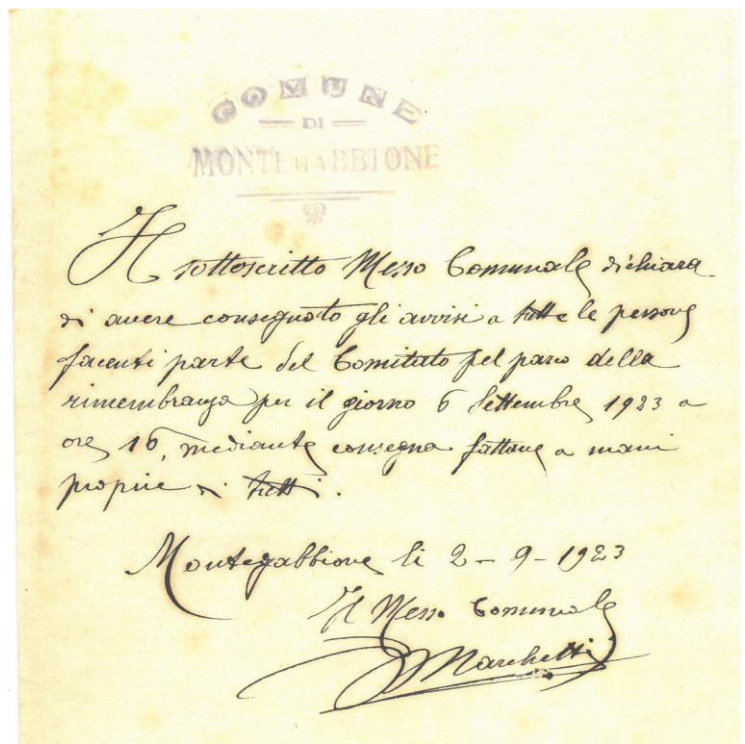 COMUNE
DI
MONTEGABBIONE
Il sottoscritto Messo Comunale dichiara
di avere consegnato gli avvisi a tutte le persone
facenti parte del Comitato pel parco della
rimembranza per il giorno 6 Settembre 1923 a
ore 16, mediante consegna fattane a mani
proprie di tutti.
Montegabbione li 2-9-1923
Il Messo Comunale
Marchetti